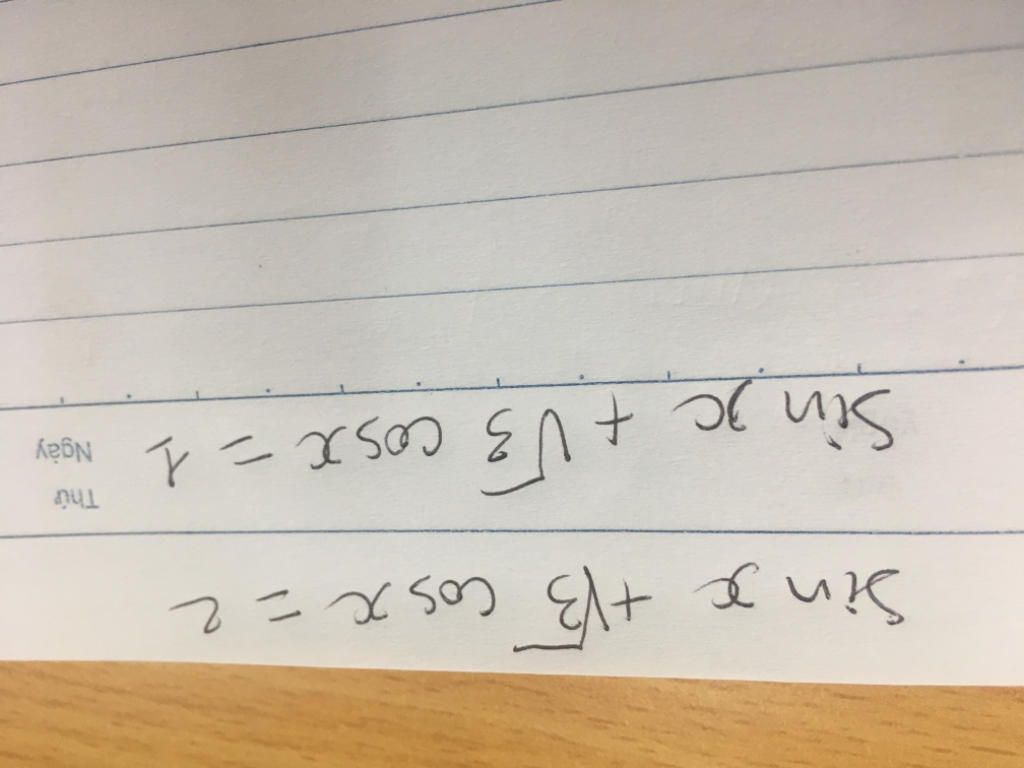 sin x + √3 cos x = 2
Thứ
Ngày
sin x + √3 cos x = 1